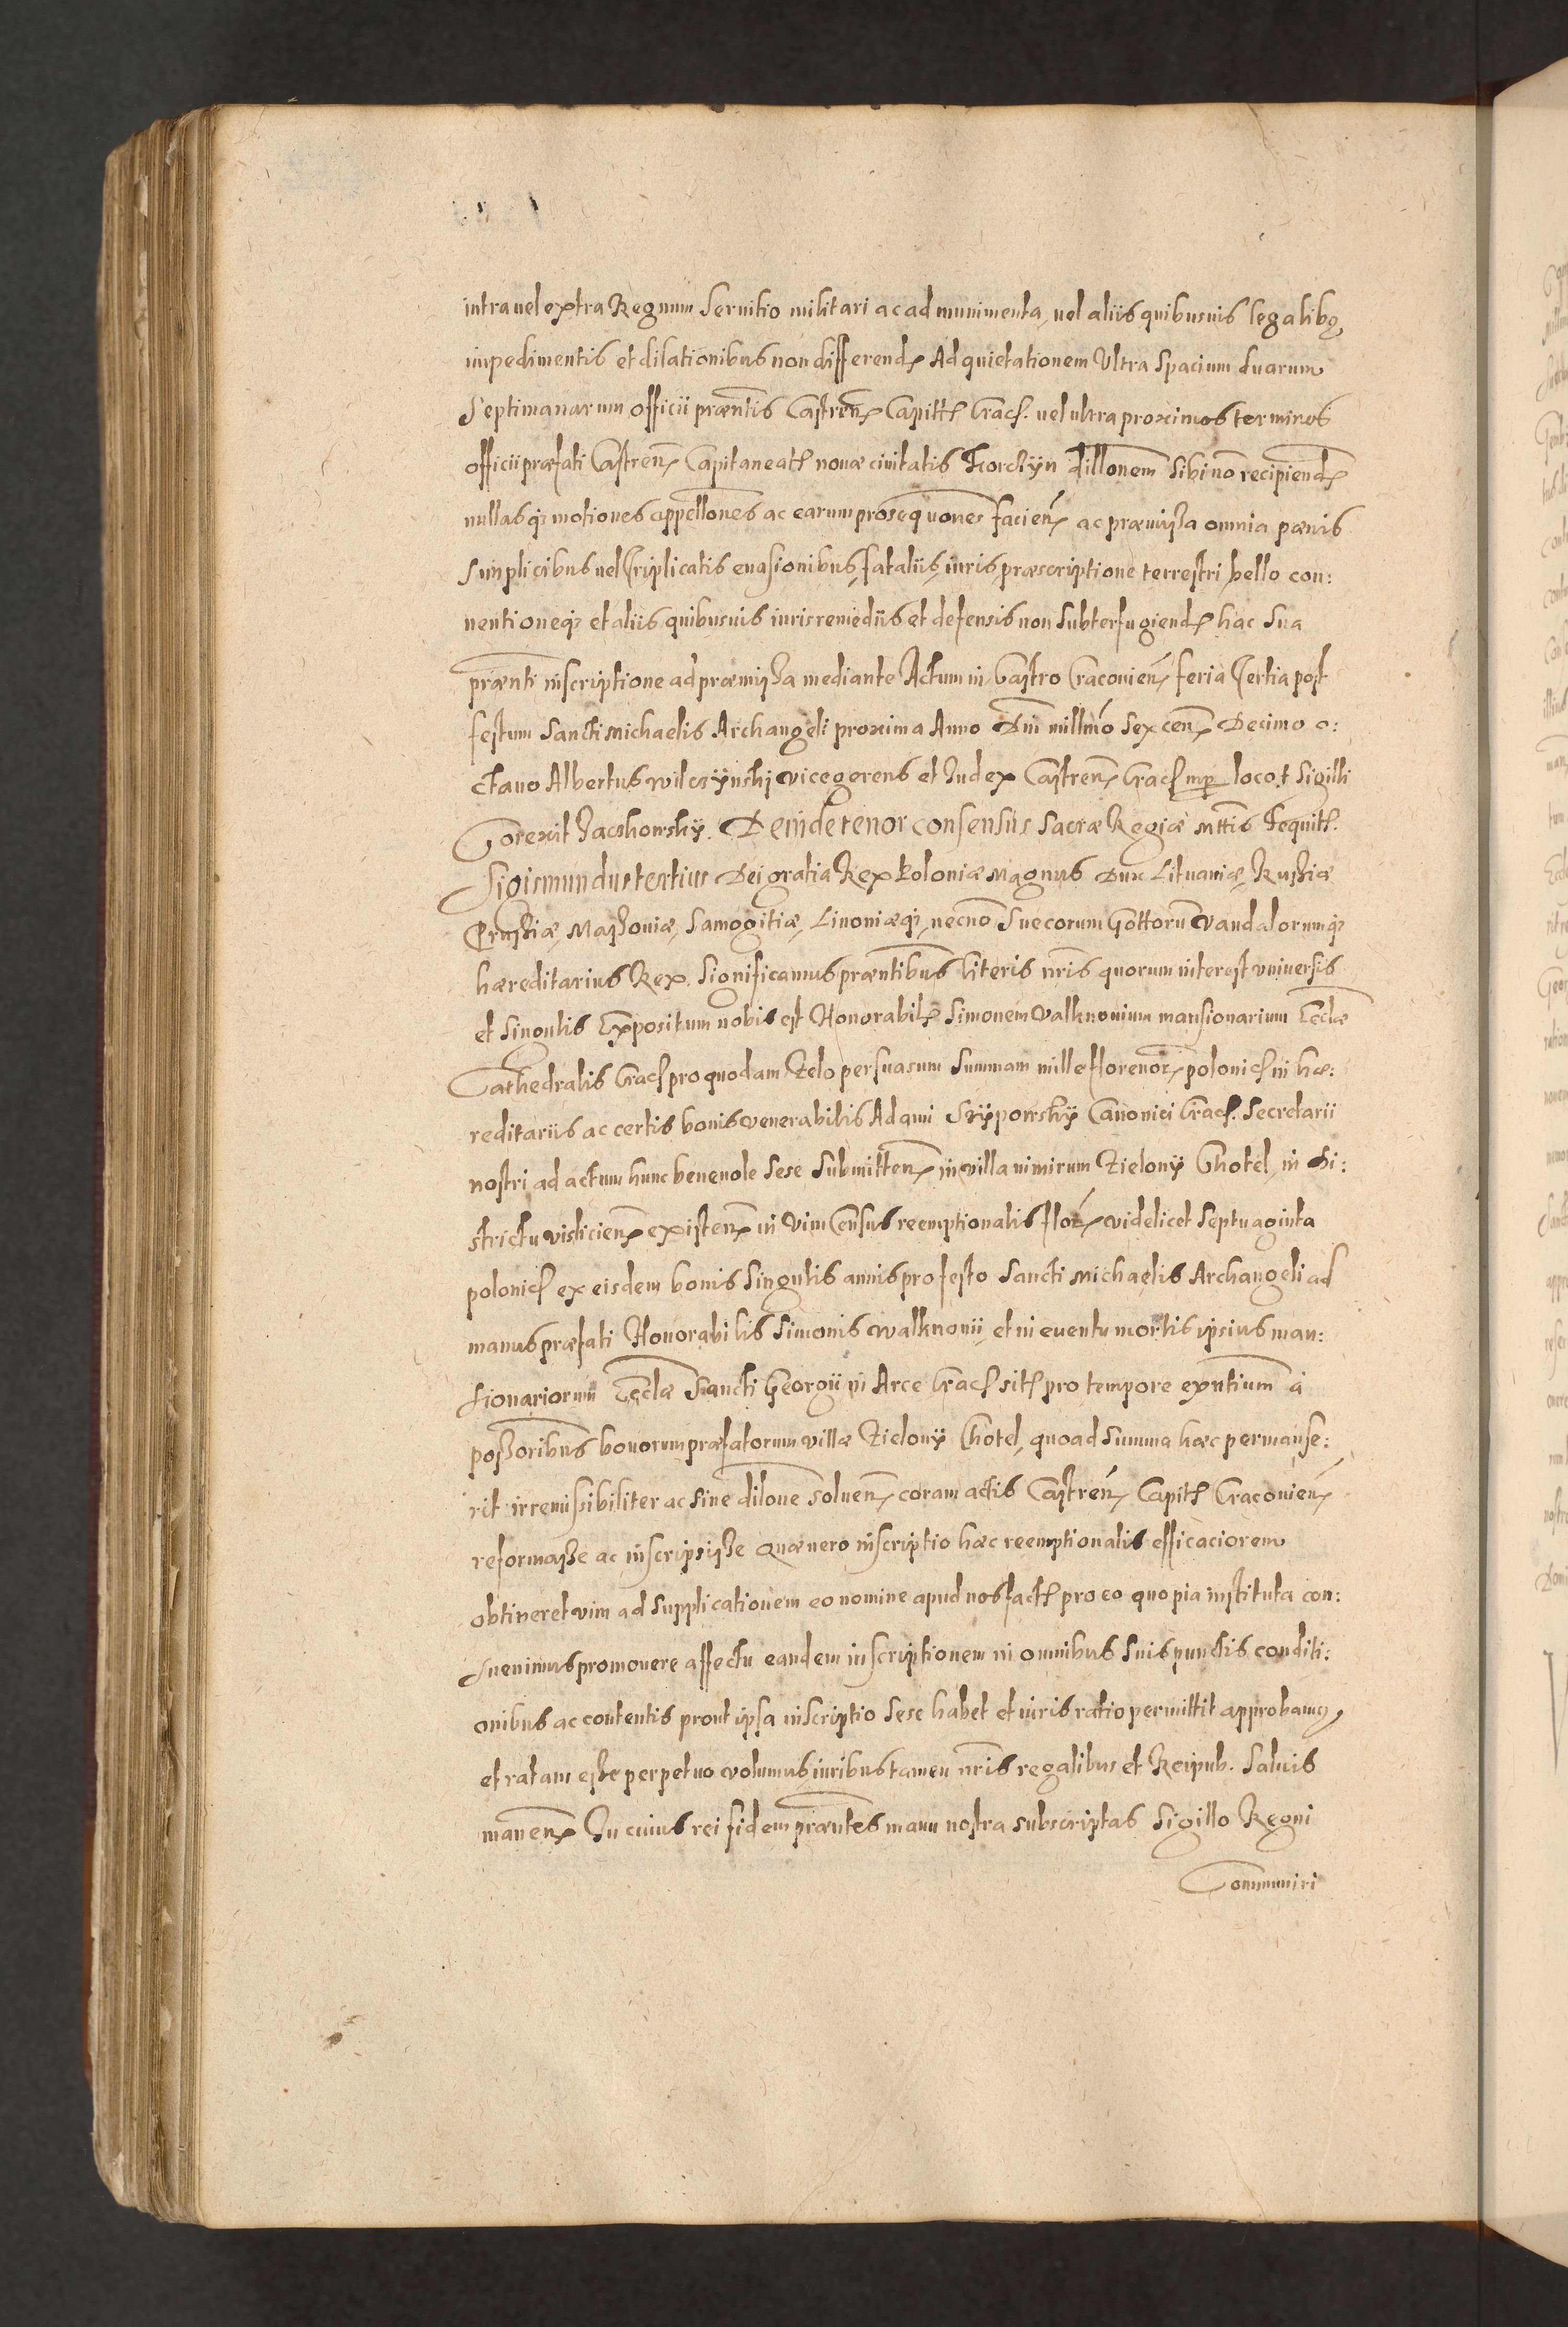 intra vel extra Regnum Servitio militari ac ad munimenta, vel aliis quibusvis legalibꝫ
impedimentis et dilationibus non differend. Ad quietationem Ultra Spacium duarum
Septimanarum officii præntis Castren. Capittl. Crac. vel ultra proximos terminos
officii præfati Castren. Capitaneatl. novæ civitatis Korczÿn dillonem sibi nō recipiend.
nullasqꝫ motiones appellones ac earum prosequones facien. ac præmißa omnia pænis
Simplicibus vel triplicatis evasionibus, fataliis, iuris, præscriptione terrestri, bello con:
ventioneqꝫ et aliis quibusvis iuris remediis et defensis non Subterfugiend. hac Sua
prænti inscriptione ad præmißa mediante Actum in Castro Cracovien. feria Tertia post
festum Sancti Michaelis Archangeli proxima Anno Dni millmo Sexcen. Decimo o:
ctavo Albertus Wilczÿnskj vicegerens et Iudex Castren. Crac. mp loco .t. Sigilli
Corexit Jaczkowskÿ. Deinde tenor consensus Sacræ Regiæ Mttis Sequitl.
Sigismundus tertius Dei gratia Rex Poloniæ Magnus Dux Lituaniæ, Rußiæ
Prußiæ, Maßoviæ, Samogitiæ, Livoniæqꝫ, necnō Suecorum Gottorū Vandalorumqꝫ
hæreditarius Rex. Significamus præntibus literis nris quorum interest universis
et Singulis Expositum nobis est Honorabil. Simonem Valknovium mansionarium Eccliæ
Cathedralis Crac. pro quodam Zelo persuasum Summam mille florenor. polonic. in hæ:
reditariis ac certis bonis venerabilis Adami Szÿpowskÿ Canonici Crac. Secretarii
nostri ad actum hunc benevole Sese Submitten. in villa nimirum Zielonÿ Chotel, in di:
strictu visticien. existen. in vim Census reemptionalis flor. videlicet Septuaginta
polonic. ex eisdem bonis Singulis annis pro festo Sancti Michaelis Archangeli ad
manus præfati Honorabilis Simonis Walknovii, et in eventu mortis ipsius man:
sionariorum Eccliæ Sancti Georgii in Arce Crac. sitl. pro tempore exntium à
poßoribus bonorum præfatorum villæ Zielonÿ Chotel, quoad Summa hæc permanse:
rit irremissibiliter ac Sine dilone Solven. coram actis Castren. Capitl. Cracovien.
reformaße ac inscripsiße Quæ vero inscriptio hæc reemptionalis efficaciorem
obtineret vim ad Supplicationem eo nomine apud nos factl. pro eo quo pia instituta con:
suevimus promovere affectu eandem inscriptionem in omnibus Suis punctis conditi:
onibus ac contentis prout ipsa inscriptio Sese habet et iuris ratio permittit approbamꝰ
et ratam eße perpetuo volumus, iuribus tamen nris regalibus et Reipub. Salvis
manen. In cuius rei fidem præntes manu nostra subscriptas Sigillo Regni
Communiri